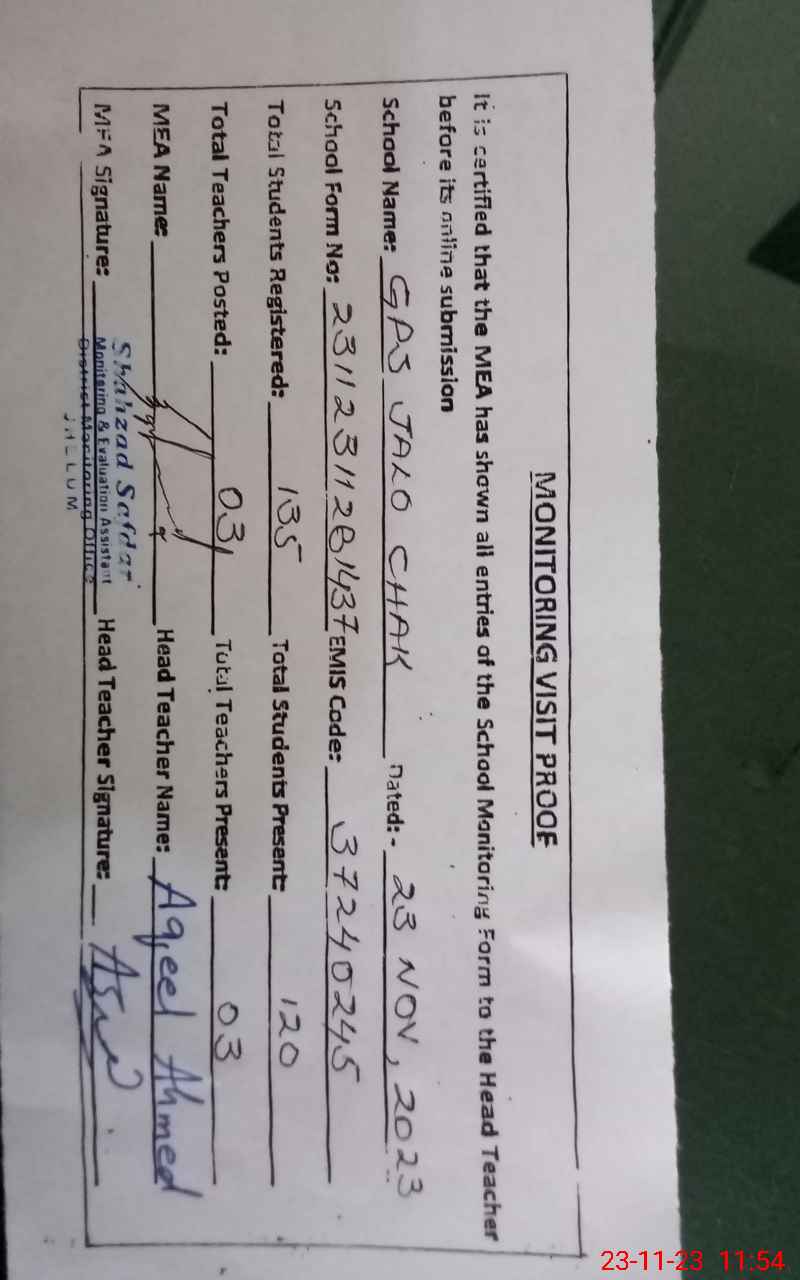 MONITORING VISIT PROOF
It is certified that the MEA has shown all entries of the School Monitoring Form to the Head Teacher
before its online submission
School Name: GPS JALO CHAK Dated:- 23 NOV, 2023
School Form No: EMIS Code: 37240245
Total Students Registered: 135 Total Students Present: 120
Total Teachers Posted: 03 Total Teachers Present: 03
MEA Name: Head Teacher Name: Aqeel Ahmed
MEA Signature: Head Teacher Signature:
Shahzad Safdar
Monitoring & Evaluation Assistant
District Monitoring Office
JHELUM
23-11-23 11:54